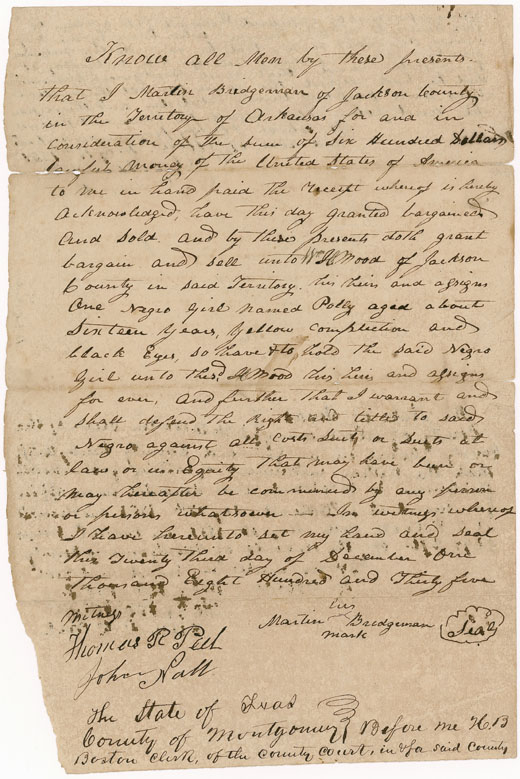 Know all Men by these presents
that I Martin Bridgeman of Jackson County
in the Territory of Arkansas for and in
consideration of the sum of Six Hundred Dollars
lawful Money of the United States of America
to me in hand paid the receipt whereof is hereby
acknowledged, have this day granted bargained
and Sold and by these Presents doth grant
bargain and sell unto Wm H Wood of Jackson
County in said Territory his heirs and assigns
One Negro Girl Named Polly aged about
Sixteen Years, Yellow complection and
black Eyes, so have & to hold the said Negro
Girl unto the sd H Wood his heirs and assigns
for ever, and further that I warrant and
shall defend the Right and title to said
Negro against all costs suits or suits at
law or in Equity that may have been or
may hereafter be commenced by any person
or persons whatsoever — In witness whereof
I have hereunto set my hand and seal
this Twenty third day of December One
thousand Eight Hundred and Thirty five
Witness
his
Martin Bridgeman
mark
Seal
Thomas R
John
The State of Texas
County of Montgomery } Before me H B
Boston Clerk, of the County Court, in & for said County